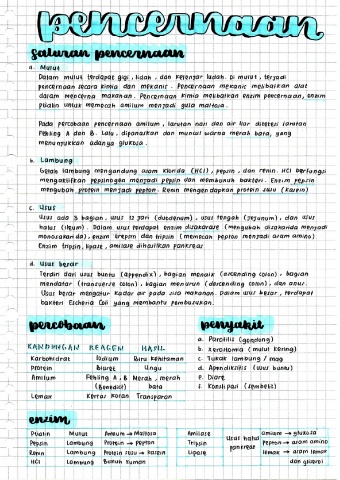 pencernaan
saluran pencernaan
a. Mulut
Dalam mulut terdapat gigi, lidah, dan kelenjar ludah. Di mulut, terjadi
pencernaan secara kimia dan mekanis. Pencernaan mekanis melibatkan alat
dalam mencerna makanan. Pencernaan kimia melibatkan enzim pencernaan, enzim
ptialin untuk memecah amilum menjadi gula maltosa.
Pada percobaan pencernaan amilum, larutan nasi dan air liur ditetesi larutan
Fehling A dan B. Lalu, dipanaskan dan muncul warna merah bata, yang
menunjukkan adanya glukosa.
b. Lambung
Getah lambung mengandung asam klorida (HCl), pepsin, dan renin. HCl berfungsi
mengaktifkan pepsinogen menjadi pepsin dan membunuh bakteri. Enzim pepsin
mengubah protein menjadi pepton. Renin mengendapkan protein susu (kasein)
c. Usus
Usus ada 3 bagian, usus 12 jari (duodenum), usus tengah (jejunum), dan usus
halus (ileum). Dalam usus terdapat enzim disakarase (mengubah disakarida menjadi
monosakarida), enzim erepsin dan tripsin (memecah pepton menjadi asam amino)
Enzim tripsin, lipase, amilase dihasilkan pankreas
d. Usus besar
Terdiri dari usus buntu (appendix), bagian menaik (ascending colon), bagian
mendatar (transverse colon), bagian menurun (descending colon), dan anus.
Usus besar mengatur kadar air pada sisa makanan. Dalam usus besar, terdapat
bakteri Escheria Coli yang membantu pembusukan.
percobaan
KANDUNGAN REAGEN HASIL
Karbohidrat Iodium Biru kehitaman
Protein Biuret Ungu
Amilum Fehling A, B Merah, merah
(Benedict) bata
Lemak Kertas koran Transparan
penyakit
a. Parotitis (gondong)
b. Xerostomia (mulut kering)
c. Tukak lambung / mag
d. Apendiksitis (usus buntu)
e. Diare
f. Konstipasi (sembelit)
enzim
Ptialin Mulut Amilum → Maltosa
Pepsin Lambung Protein → pepton
Renin Lambung Protein susu → kasein
HCl Lambung Bunuh kuman
Amilase
Tripsin
Lipase
usus halus
pankreas
amilum → glukosa
Pepton → asam amino
lemak → asam lemak
dan gliserol